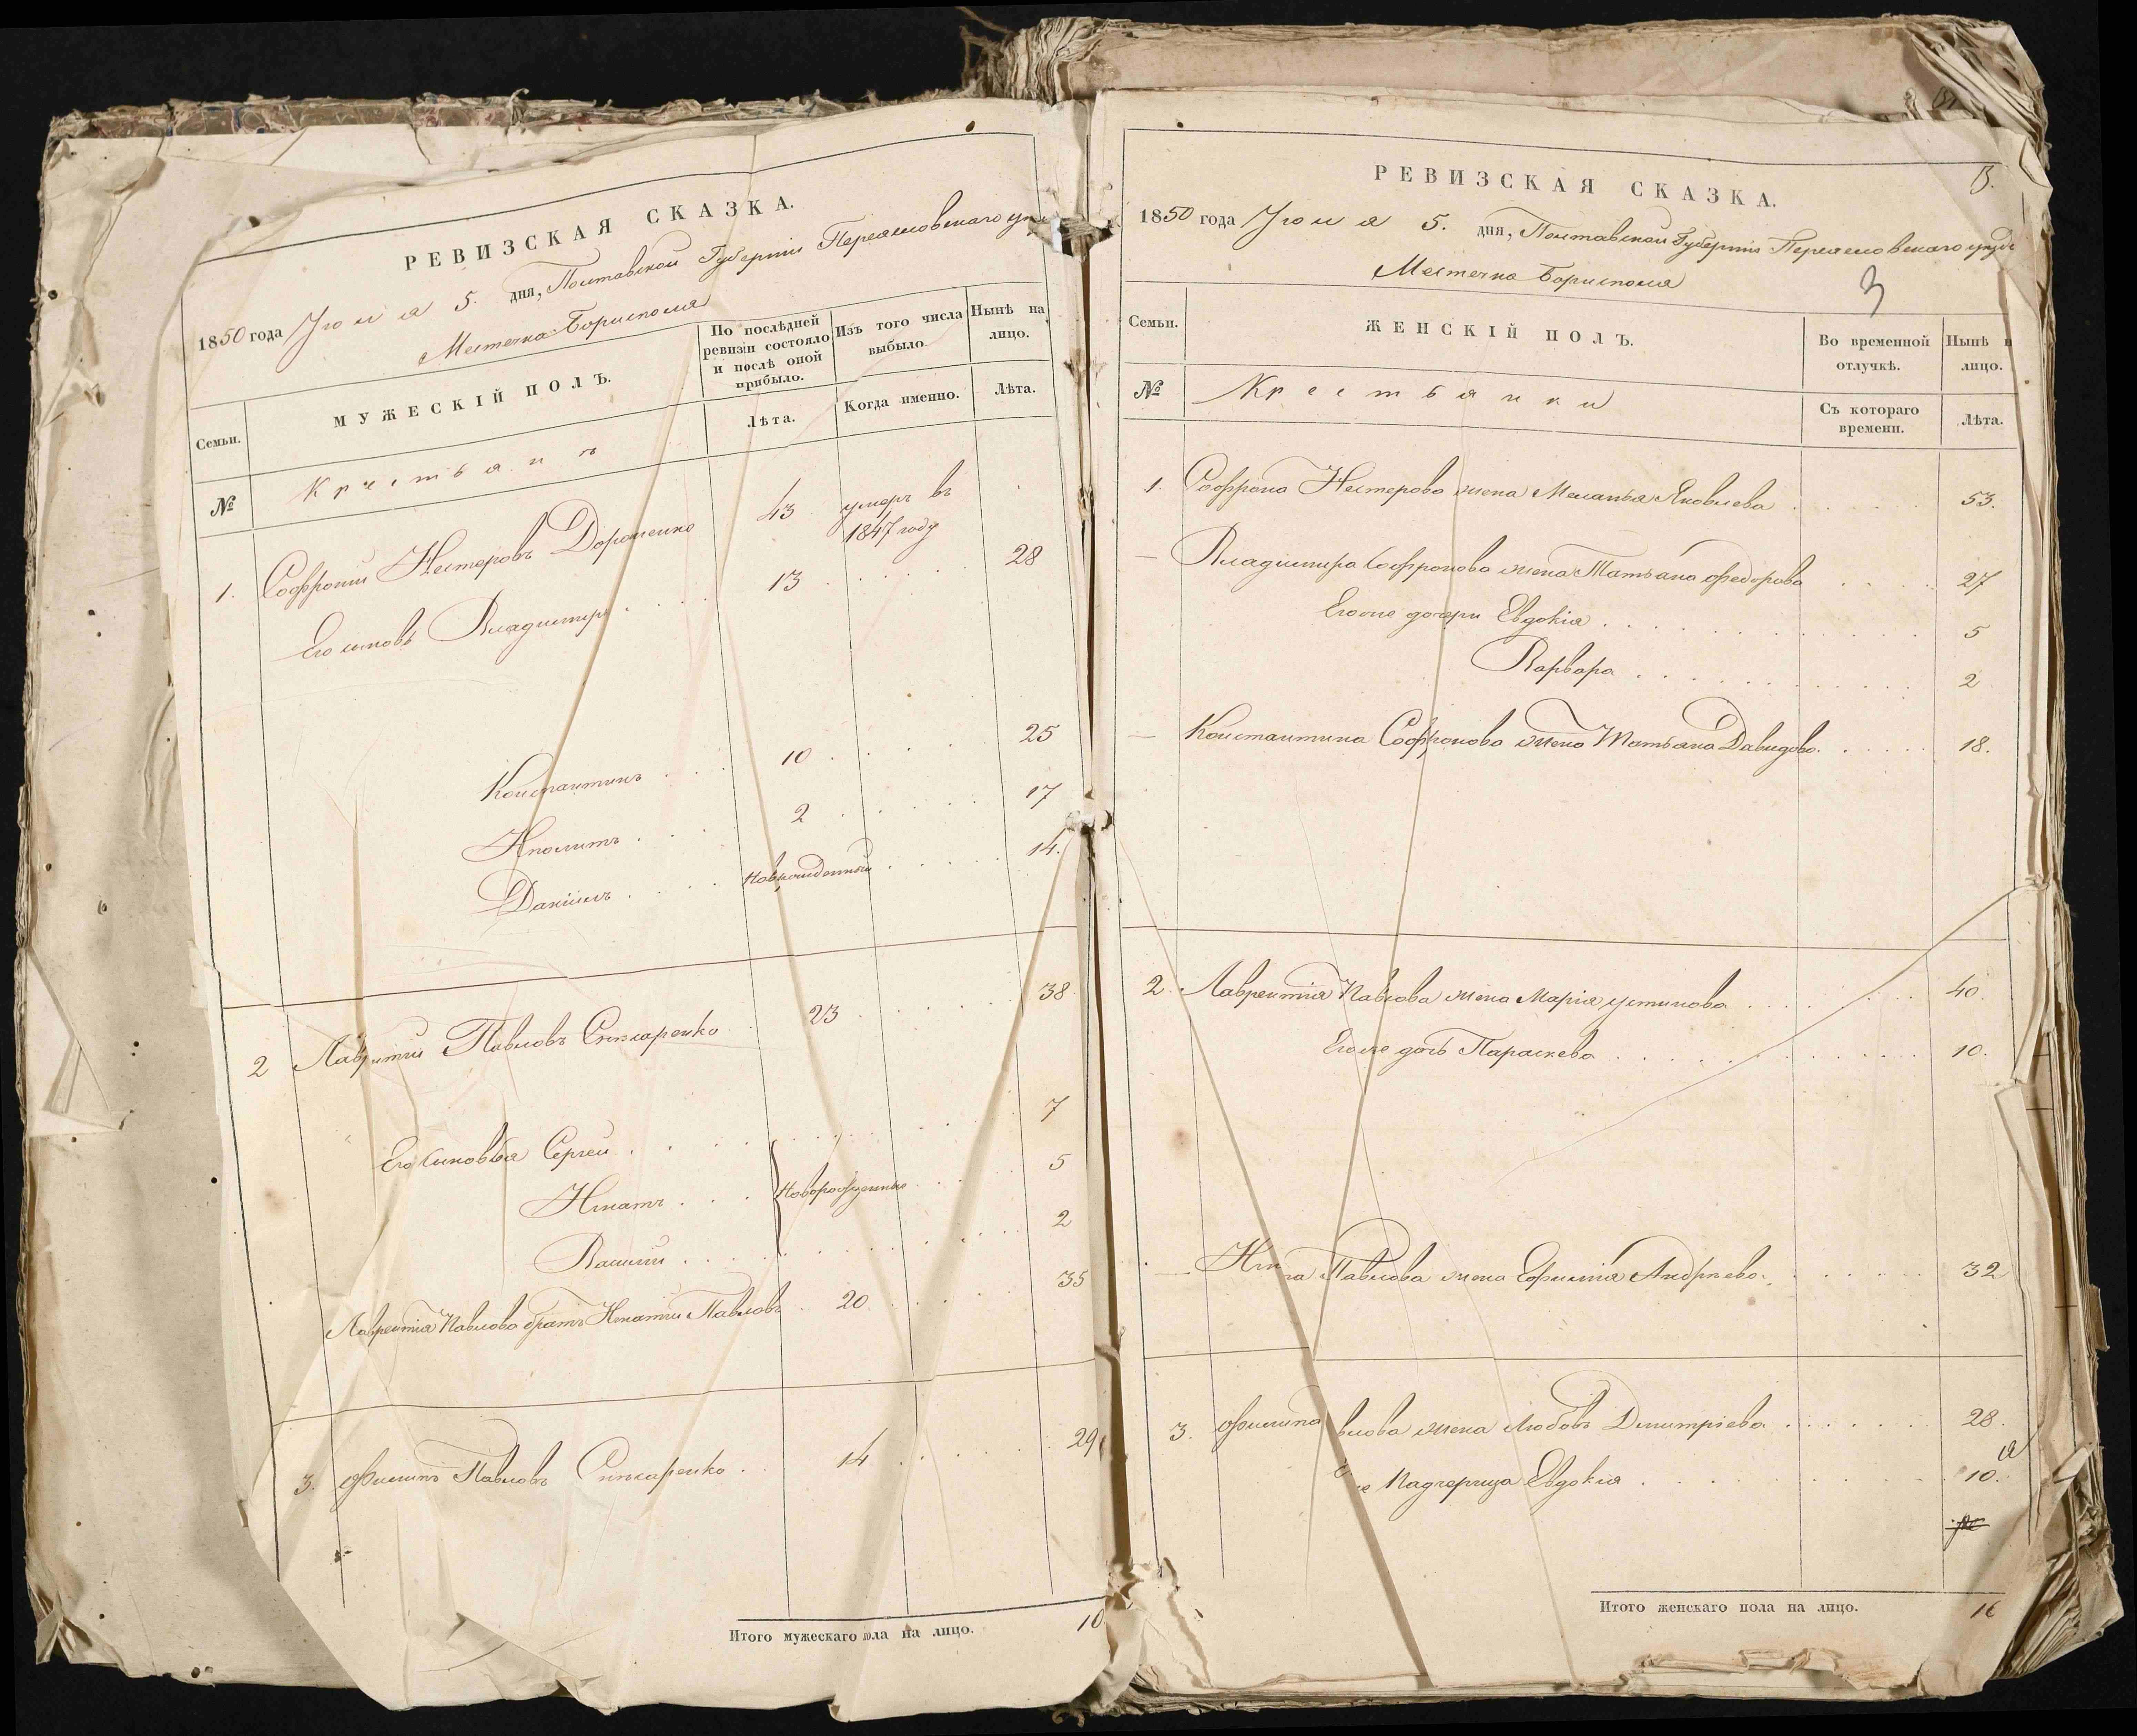 РЕВИЗСКАЯ СКАЗКА.
1850 года Июля 5. дня, Полтавской Губерніи Переясловскаго
Местечка Борисполя
Семьи.
МУЖЕСКІЙ ПОЛЪ.
По послѣдней ревизіи состояло и послѣ оной прибыло.
Изъ того числа выбыло.
Нынѣ на лицо.
№
Крестьянъ
Лѣта.
Когда именно.
Лѣта.
1. Софроній Нестеровъ Дорошенко 43 умеръ въ 1847 году
Его сыновъ Владимиръ 13 28
Константинъ 10 25
Иполитъ 2 17
Даніилъ новорожденный 14.
2 Лаврентій Павловъ Слюсаренко 23 38
Его сыновья Сергей 7
Игнатъ Новорожденные 5
Василій 2
Лаврентія Павлова братъ Игнатій Павловъ 20 35
3. Филипъ Павловъ Слюсаренко 14 29
Итого мужескаго пола на лицо. 10
РЕВИЗСКАЯ СКАЗКА. 3.
1850 года Июля 5. дня, Полтавской Губерніи Переясловскаго
Местечка Борисполя
3
Семьи.
ЖЕНСКІЙ ПОЛЪ.
Во временной отлучкѣ.
Нынѣ н лицо.
№
Крестьянки
Съ котораго времени.
Лѣта.
1. Софрона Нестерова жена Меланья Яковлева 53.
— Владимира Софронова жена Татьяна Федорова 27
Его же дочери Евдокія 5
Варвара 2
— Константина Софронова жена Татьяна Давидова 18.
2. Лаврентія Павлова жена Марія Устинова 40.
Его же дочь Параскева 10.
— Игна Павлова жена Ефимія Андреева 32
3. Филипа влова жена Любовь Дмитріева 28.
е Падчерица Евдокія 10.
Итого женскаго пола на лицо.